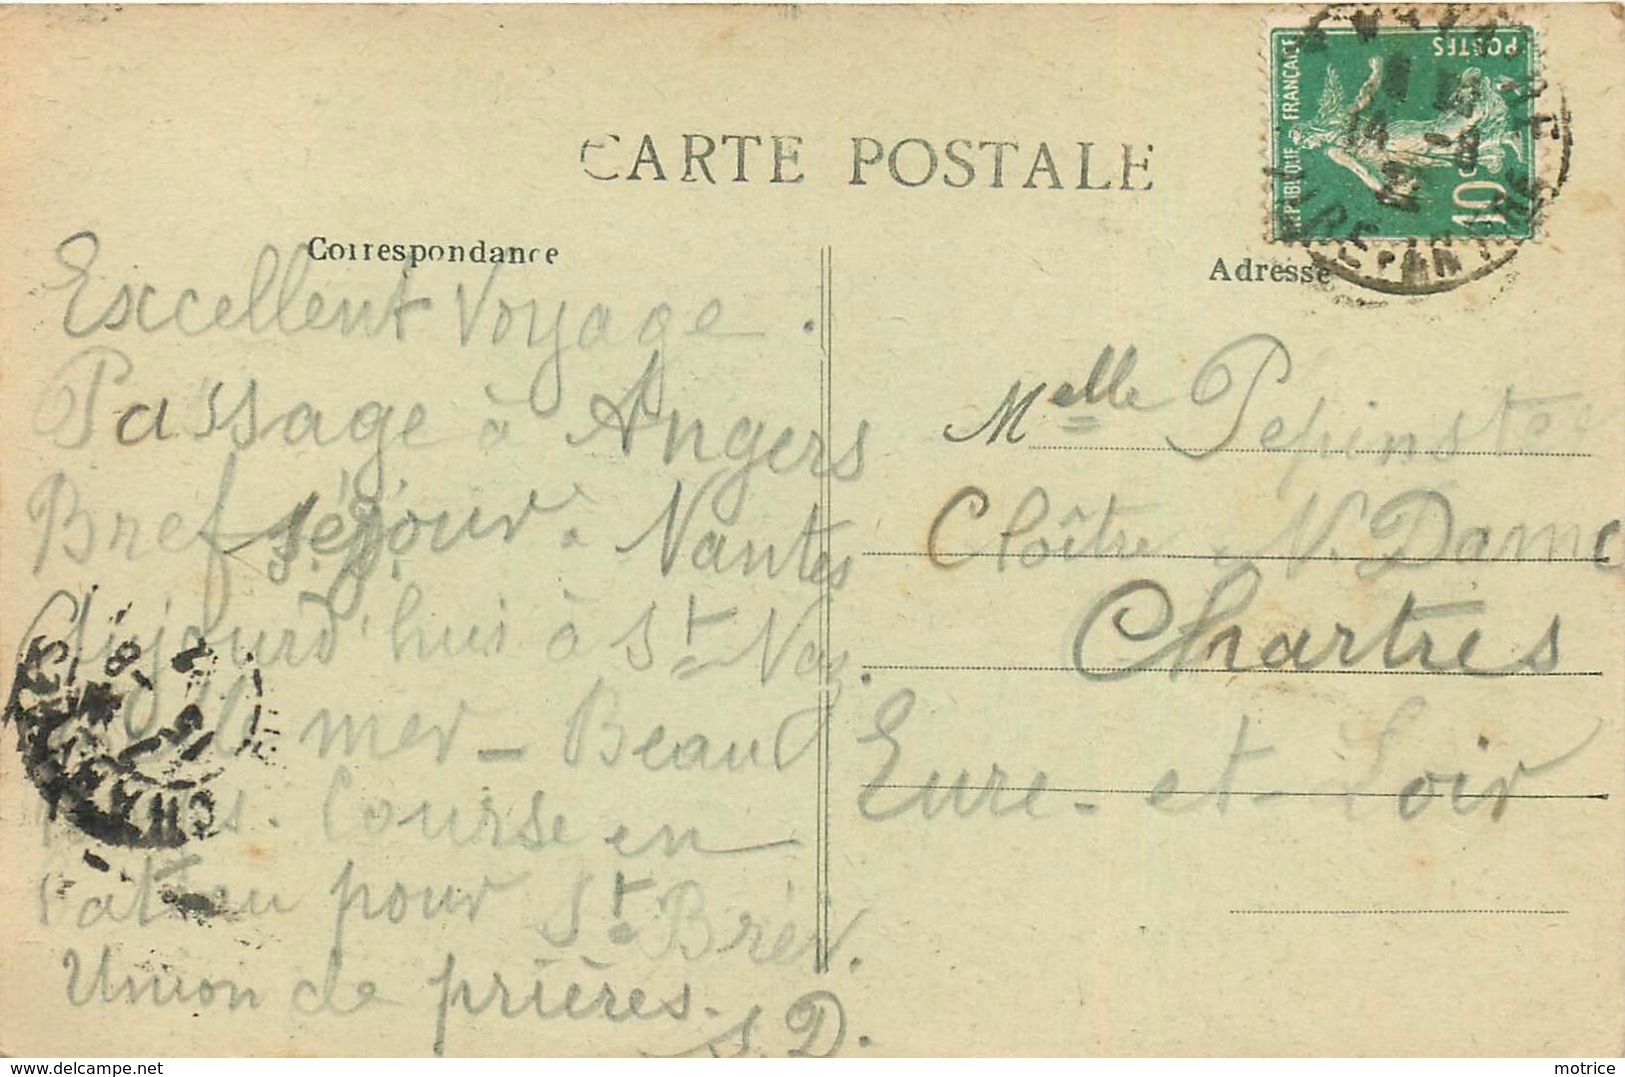 CARTE POSTALE
Correspondance
Adresse
REPUBLIQUE FRANÇAISE
POSTES
10 C
Excellent Voyage.
Passage à Angers
Bref séjour à Nantes
Aujourd'hui à St Naz.
mer - Beau
Course en
pour St Brév.
Union de prières.
S. D.
Melle
Cloître N. Dame
Chartres
Eure-et-Loir
delcampe.net
motrice